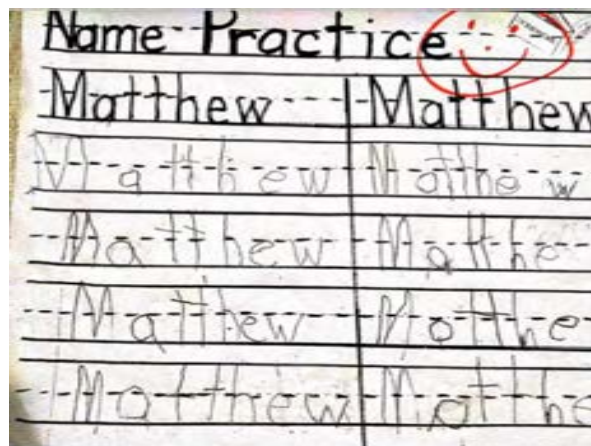 Name Practice
Matthew Matthew
Matthew Matthew
Matthew Matthe
Matthew Matthe
Matthew Matthe